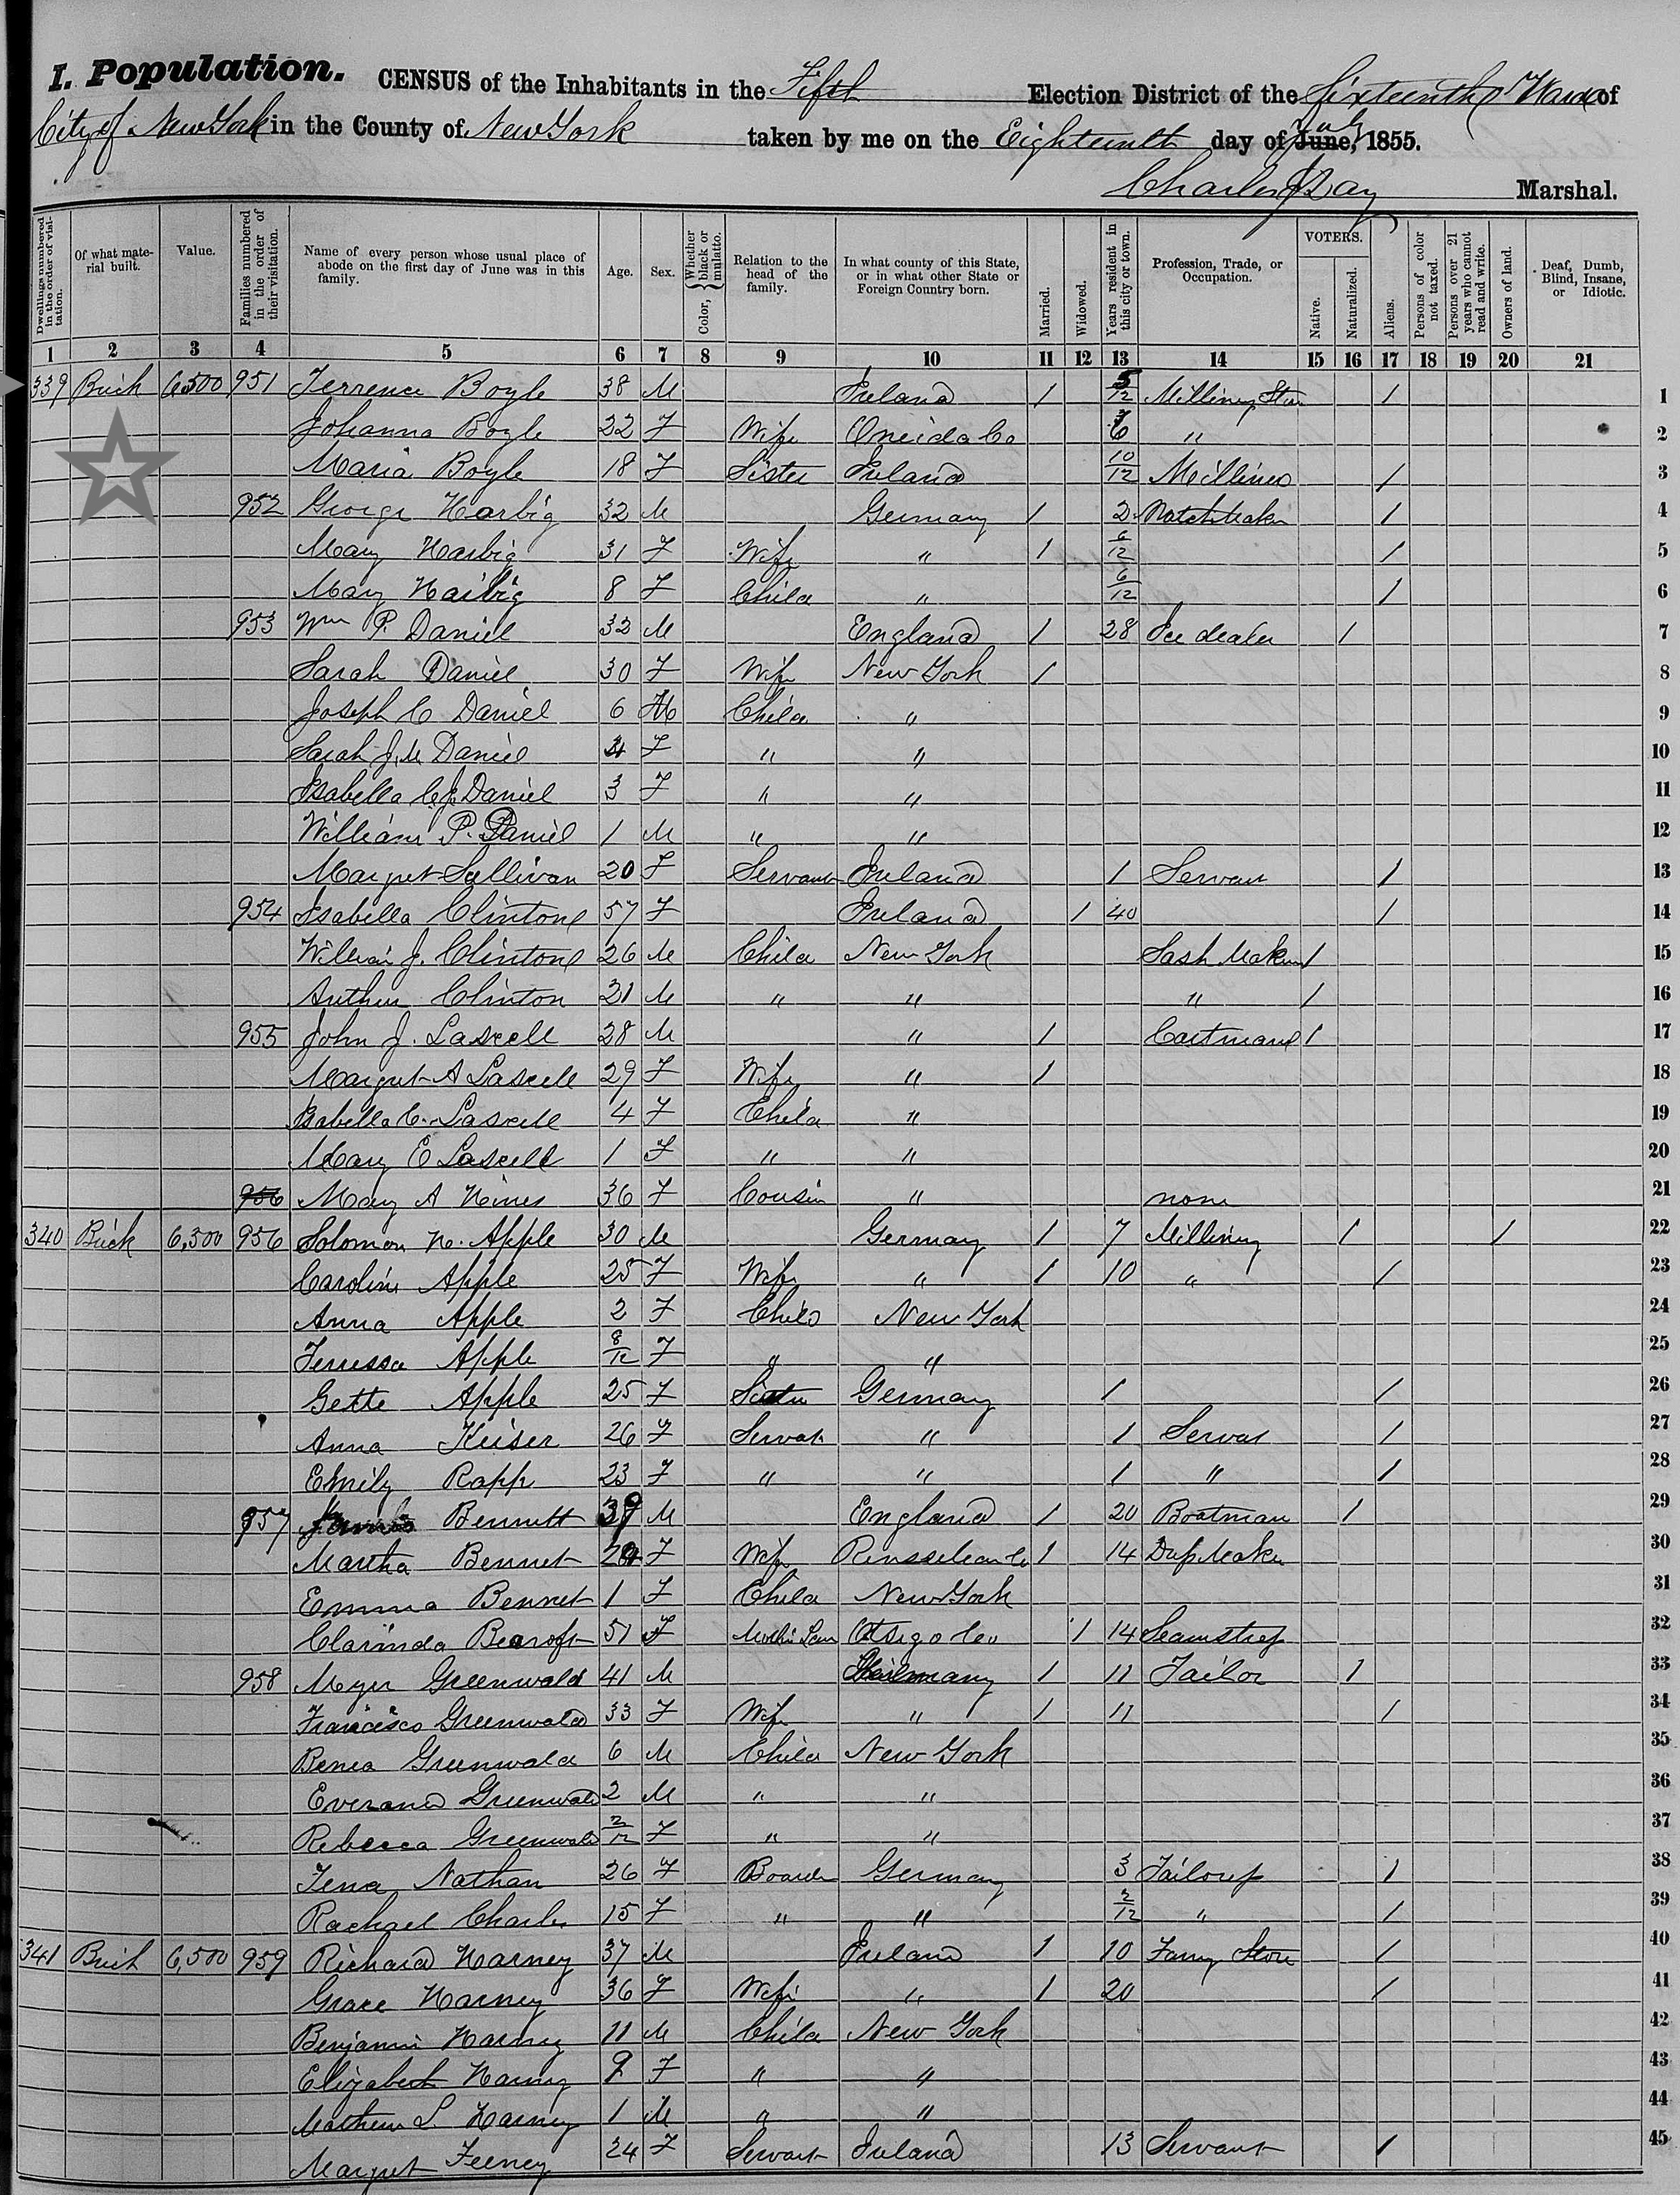 I. Population. CENSUS of the Inhabitants in the Fifth Election District of the Sixteenth Ward of
City of New York in the County of New York taken by me on the Eighteenth day of June, July 1855.
Charles J Day Marshal.
Dwellings numbered in the order of visitation. Of what material built. Value. Families numbered in the order of their visitation. Name of every person whose usual place of abode on the first day of June was in this family. Age. Sex. Color, Whether black or mulatto. Relation to the head of the family. In what county of this State, or in what other State or Foreign Country born. Married. Widowed. Years resident in this city or town. Profession, Trade, or Occupation. VOTERS. Native. Naturalized. Aliens. Persons of color not taxed. Persons over 21 years who cannot read and write. Owners of land. Deaf, Dumb, Blind, Insane, or Idiotic.
1 2 3 4 5 6 7 8 9 10 11 12 13 14 15 16 17 18 19 20 21
339 Brick 6500 951 Terrence Boyle 38 M Ireland 1 5/12 Millinery Store 1 1
Johanna Boyle 22 F Wife Oneida Co 6 " 2
Maria Boyle 18 F Sister Ireland 10/12 Milliner 1 3
952 George Harbig 32 M Germany 1 2 Watch Maker 1 4
Mary Harbig 31 F Wife " 1 6/12 1 5
Mary Harbig 8 F Child " 6/12 1 6
953 Wm P. Daniel 32 M England 1 28 Ice dealer 1 7
Sarah Daniel 30 F Wife New York 1 8
Joseph C Daniel 6 M Child " 9
Sarah J. M Daniel 4 F " " 10
Isabella C. J. Daniel 3 F " " 11
William P. Daniel 1 M " " 12
Margret Sullivan 20 F Servant Ireland 1 Servant 1 13
954 Isabella Clinton 57 F Ireland 1 40 1 14
William J. Clinton 26 M Child New York Sash Maker 1 15
Arthur Clinton 21 M " " " 1 16
955 John J. Lascell 28 M " 1 Cartman 1 17
Margret A Lascell 29 F Wife " 1 18
Isabella C. Lascell 4 F Child " 19
Mary E Lascell 1 F " " 20
956 Mary A Hines 36 F Cousin " none 21
340 Brick 6,500 956 Solomon N. Apple 30 M Germany 1 7 Millinery 1 1 22
Caroline Apple 25 F Wife " 1 10 " 1 23
Anna Apple 2 F Child New York 24
Terressa Apple 8/12 F " " 25
Gette Apple 25 F Sister Germany 1 1 26
Anna Keiser 26 F Servant " 1 Servant 1 27
Emily Rapp 23 F " " 1 " 1 28
957 Bennett 39 M England 1 20 Boatman 1 29
Martha Bennet F Wife Rensselear Co 1 14 Dress Maker 30
Emma Bennet 1 F Child New York 31
Clarinda Becroft 51 F Mother Law Otsego Co 1 14 Seamstress 32
958 Meyer Greenwald 41 M Germany 1 11 Tailor 1 33
Francisco Greenwald 33 F Wife " 1 11 1 34
Benia Greenwald 6 M Child New York 35
Everand Greenwald 2 M " " 36
Rebecca Greenwald 2/12 F " " 37
Tena Nathan 26 F Boarder Germany 3 Tailoress 1 38
Rachael Charles 15 F " " 2/12 " 1 39
341 Brick 6,500 959 Richard Harney 37 M Ireland 1 10 Fancy Store 1 40
Grace Harney 36 F Wife " 1 20 1 41
Benjamin Harney 11 M Child New York 42
Elizabeth Harney 9 F " " 43
Mathew L. Harney 1 M " " 44
Margret Feeney 24 F Servant Ireland 13 Servant 1 45